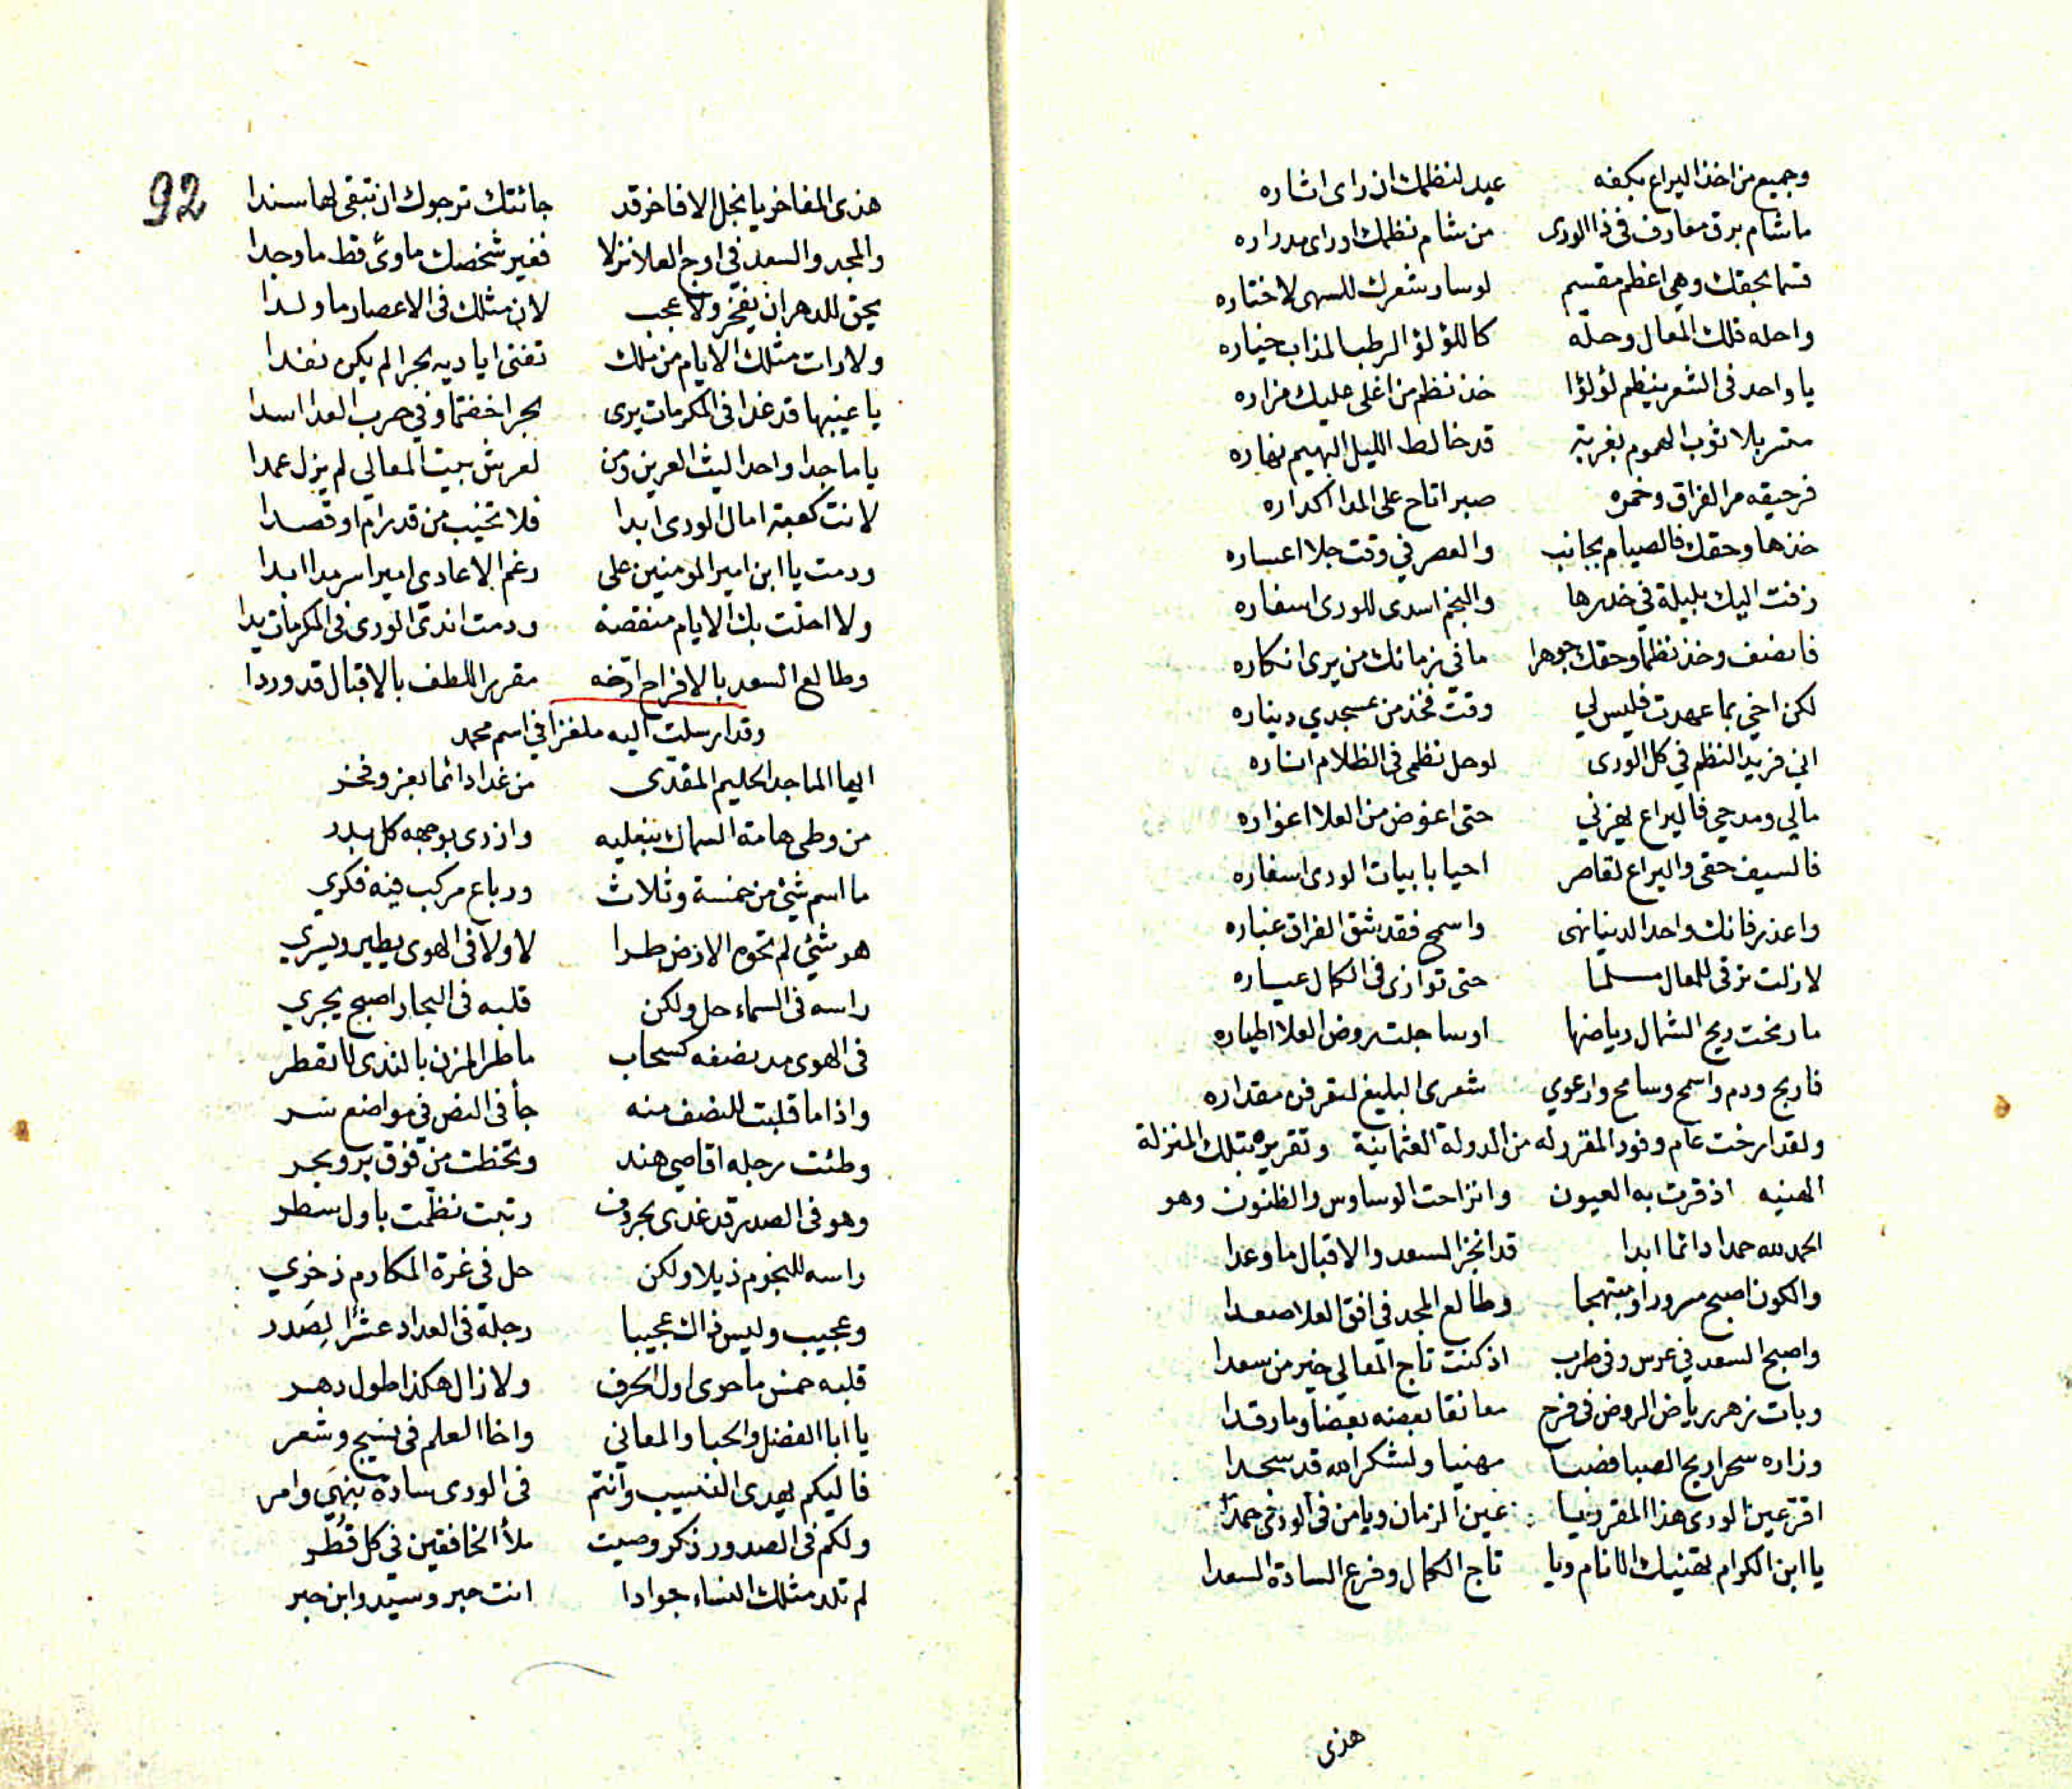 وجميع من اخذ اليراع بكفه عبد لنظمك ان راى اشاره
ما شام برق معارف في ذا الورى من شام نظمك او راى مدراره
قسما بحقك وهي اعظم مقسم لو سار شعرك للسهى لاختاره
واحله فلك المعال وحله كاللؤلؤ الرطب المذاب خياره
يا واحد في الشعر ينظم لؤلؤا خذ نظم من اغلى عليك مزاره
متسربلا ثوب الهموم بغربة قد خالط الليل البهيم نهاره
فرحيقه مر الفراق وخمره صبر اتاح على المدا اكداره
خذها وحقك فالصيام بجانب والعصر في وقت جلا اعساره
زفت اليك بليلة في خدرها والنجم اسدى للورى اسفاره
فانصف وخذ نظما وحقك جوهرا ما في زمانك من يرى انكاره
لكن اخي بما عهدت فليس لي وقت فخذ من عسجدي ديناره
اني فريد النظم في كل الورى لو حل نظمى في الظلام اناره
مالي ومدحي فاليراع يهزني حتى اغوض من العلا اغواره
فالسيف حقى واليراع لقاصر احيا بابيات الورى اسفاره
واعذر فانك واحد الدنيا نهى واسمح فقد شق الفراق غباره
لازلت ترقى للمعال مسلما حتى توازى في الكمال عياره
ما رنحت ريح الشمال رياضها او ساجلت روض العلا اطياره
فاربح ودم واسمح وسامح وارعوي شعرى البليغ لتعرفن مقداره
ولقد ارخت عام وفود المقرر له من الدولة العثمانية وتقريره بتلك المنزلة
الهنيه اذ قرت به العيون وانزاحت الوساوس والظنون وهو
الحمد لله حمدا دائما ابدا قد انجز السعد والاقبال ما وعدا
والكون اصبح مسرورا ومبتهجا وطالع المجد في افق العلا صعدا
واصبح السعد في عرس وفي طرب اذ كنت تاج المعالي خير من سعدا
وبات زهر رياض الروض في فرح معانقا بعضه بعضا وما رقدا
وزاره سحرا ريح الصبا فصبا مهنيا ولشكر الله قد سجدا
اقر عين الورى هذا المقرر يا عين الزمان ويا من في الورى حمدا
يا ابن الكرام تهنيك الانام ويا تاج الكمال وفرع السادة السعدا
هذى
92
هذى المفاخر يا نجل الافاخر قد جائتك ترجوك ان تبقى لها سندا
والمجد والسعد في اوج العلا نزلا فغير شخصك ماوى قط ما وجدا
يحق للدهر ان يفخر ولا عجب لان مثلك في الاعصار ما ولدا
ولا رات مثلك الايام من ملك تفنى اياديه بحرا لم يكن نفدا
يا غيبها قد غدا في المكرمات يرى بحرا خضما وفي حرب العدا اسدا
يا ماجدا واحدا ليث العرين ومن لعرش بيت المعالي لم يزل عمدا
لانت كعبة امال الورى ابدا فلا تخيب من قد رام او قصدا
ودمت يا ابن امير المومنين على رغم الاعادى اميرا سرمدا ابدا
ولا اخلت بك الايام منقصة ودمت اندى الورى في المكرمات يدا
وطالع السعد بالافراح ارخه مقرر اللطف بالاقبال قد وردا
وقد ارسلت اليه ملغزا في اسم محمد
ايها الماجد الحليم المفدى من غدا دائما بعز وفخر
من وطى هامة السماك بنعليه وازرى بوجهه كل بدر
ما اسم شئ من خمسة وثلاث ورباع مركب فيه فكري
هو شئ لم تحوه الارض طرا لا ولا في الهوى يطير ويسري
راسه في السماء حل ولكن قلبه في البحار اصبح يجري
في الهوى مد نصفه كسحاب ماطر المزن بالندى لا بقطر
واذا ما قلبت للنصف منه جأ في النص في مواضع شر
وطئت رجله اقاصي هند وتخطت من فوق بر وبحر
وهو في الصدر قد غدى بحروف رتبت نظمت باول سطر
راسه للنجوم ذيلا ولكن حل في غرة المكارم ذخري
وعجيب وليس ذاك عجيبا رجلة في العداد عشرا لصدر
قلبه خمس ما حوى اول الحرف ولا زال هكذا طول دهر
يا ابا الفضل والحبا والمعاني واخا العلم في نسيج وشعر
فاليكم يهدى النسيب وانتم في الورى سادة بنهي وامر
ولكم في الصدور ذكر وصيت ملأ الخافقين في كل قطر
لم تلد مثلك النساء جوادا انت حبر وسيد وابن حبر